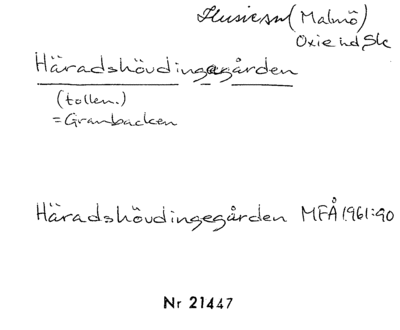 Husie sn (Malmö)
Oxie hd, Sk
Häradshövdingegården
(tollen.)
= Granbacken
Häradshövdingegården MFÅ 1961:90
Nr 21447